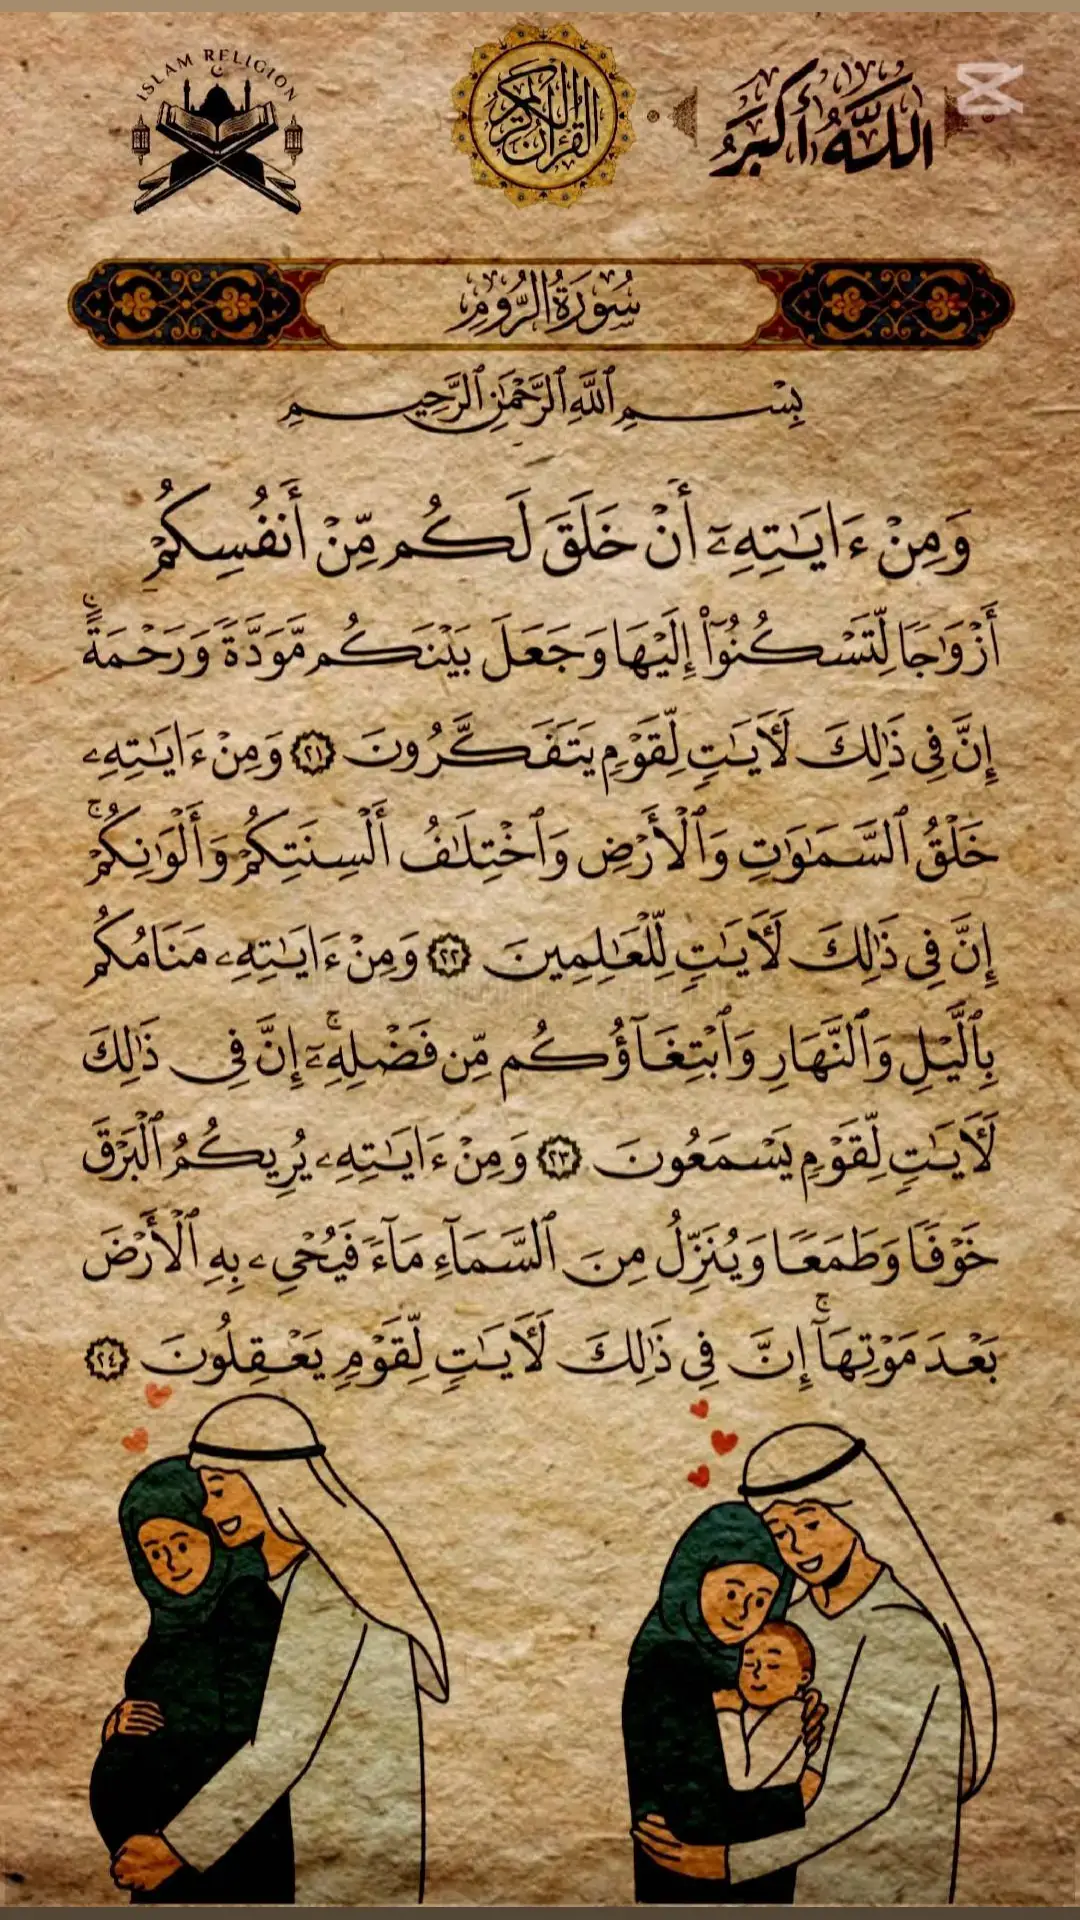 ISLAM RELIGION
القرآن الكريم
اللَّهُ أَكْبَرُ
سُورَةُ الرُّومِ
بِسْمِ ٱللَّهِ ٱلرَّحْمَٰنِ ٱلرَّحِيمِ
وَمِنْ ءَايَٰتِهِۦٓ أَنْ خَلَقَ لَكُم مِّنْ أَنفُسِكُمْ
أَزْوَٰجًا لِّتَسْكُنُوٓا۟ إِلَيْهَا وَجَعَلَ بَيْنَكُم مَّوَدَّةً وَرَحْمَةً ۚ
إِنَّ فِى ذَٰلِكَ لَـَٔايَٰتٍ لِّقَوْمٍ يَتَفَكَّرُونَ ٢١ وَمِنْ ءَايَٰتِهِۦ
خَلْقُ ٱلسَّمَٰوَٰتِ وَٱلْأَرْضِ وَٱخْتِلَٰفُ أَلْسِنَتِكُمْ وَأَلْوَٰنِكُمْ ۚ
إِنَّ فِى ذَٰلِكَ لَـَٔايَٰتٍ لِّلْعَٰلِمِينَ ٢٢ وَمِنْ ءَايَٰتِهِۦ مَنَامُكُم
بِٱلَّيْلِ وَٱلنَّهَارِ وَٱبْتِغَآؤُكُم مِّن فَضْلِهِۦٓ ۚ إِنَّ فِى ذَٰلِكَ
لَـَٔايَٰتٍ لِّقَوْمٍ يَسْمَعُونَ ٢٣ وَمِنْ ءَايَٰتِهِۦ يُرِيكُمُ ٱلْبَرْقَ
خَوْفًا وَطَمَعًا وَيُنَزِّلُ مِنَ ٱلسَّمَآءِ مَآءً فَيُحْىِۦ بِهِ ٱلْأَرْضَ
بَعْدَ مَوْتِهَآ ۚ إِنَّ فِى ذَٰلِكَ لَـَٔايَٰتٍ لِّقَوْمٍ يَعْقِلُونَ ٢٤